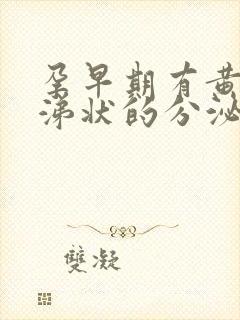 孕早期有黄
涕状的分泌
雙凝